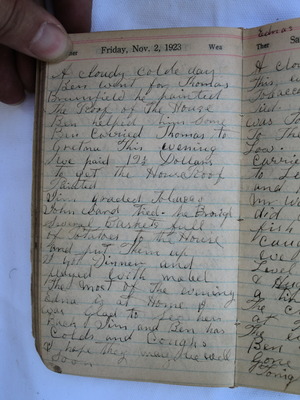 Ther
Friday, Nov. 2, 1923
Wea
A cloudy colde day
Ben went for Thomas
he painted
The Roof of The House
Ben helped him Some
Ben Carried Thomas to
Gretna This evening
We paid Dollars
to get the House Roof
Painted
Jim graded Tobacco
John and he Brough
Several Baskets full
of Potatoes to the House
and put Them up
it your Dinner and
played With mabel
The most of The evening
Edna is at Home &
was Glad to see her
Jim and Ben has
Colds and Coughs
I hope they may be well
Soon
Ther
Sa
A clo
This
Tobacco
was
To Th
Low.
Carrie
to Le
and
Mr W
did
fish
Cau
we
a
The
at
The
Ben
Gone